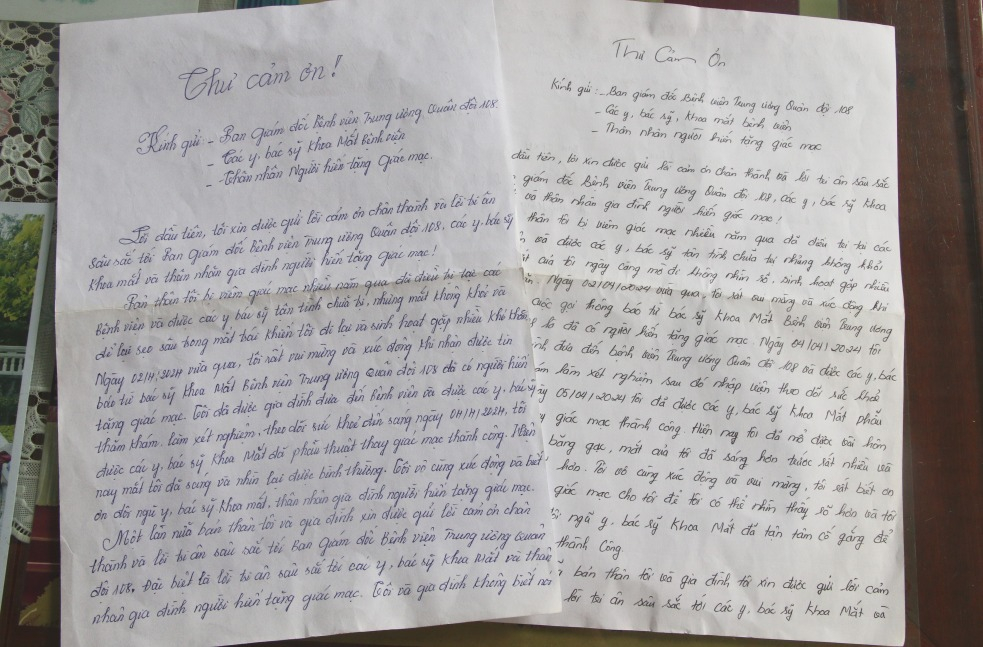 Thư cảm ơn!
Kính gửi: - Ban Giám đốc Bệnh viện Trung ương Quân đội 108.
- Các y, bác sỹ Khoa Mắt Bệnh viện
- Thân nhân Người hiến tặng Giác mạc.
Lời đầu tiên, tôi xin được gửi lời cảm ơn chân thành và lời tri ân
sâu sắc tới Ban Giám đốc Bệnh viện Trung ương Quân đội 108, các y, bác sỹ
Khoa mắt và thân nhân gia đình người hiến tặng Giác mạc!
Bản thân tôi bị viêm giác mạc nhiều năm qua đã điều trị tại các
Bệnh viện và được các y bác sỹ tận tình chữa trị, nhưng mắt không khỏi và
để lại sẹo sâu trong mắt trái khiến tôi đi lại và sinh hoạt gặp nhiều khó khăn.
Ngày 02/4/2024 vừa qua, tôi rất vui mừng và xúc động khi nhận được tin
báo từ bác sỹ Khoa Mắt Bệnh viện Trung ương Quân đội 108 đã có người hiến
tặng giác mạc. Tôi đã được gia đình đưa đến Bệnh viện và được các y, bác sỹ
thăm khám, làm xét nghiệm, theo dõi sức khoẻ đến sang ngày 04/4/2024, tôi
được các y, bác sỹ Khoa Mắt đã phẫu thuật thay giác mạc thành công. Hiện
nay mắt tôi đã sáng và nhìn lại được bình thường. Tôi vô cùng xúc động và biết
ơn đội ngũ y, bác sỹ Khoa mắt, thân nhân gia đình người hiến tặng giác mạc.
Một lần nữa bản thân tôi và gia đình xin được gửi lời cảm ơn chân
thành và lời tri ân sâu sắc tới Ban Giám đốc Bệnh viện Trung ương Quân
đội 108, Đặc biệt là lời tri ân sâu sắc tới các y, bác sỹ Khoa Mắt và thân
nhân gia đình người hiến tặng giác mạc. Tôi và gia đình không biết nói
Thư Cảm Ơn
Kính gửi: - Ban giám đốc Bệnh viện Trung ương Quân đội 108
- Các y, bác sỹ, Khoa mắt bệnh viện
- Thân nhân người hiến tặng giác mạc
đầu tiên, tôi xin được gửi lời cảm ơn chân thành và lời tri ân sâu sắc
giám đốc Bệnh viện Trung ương Quân đội 108, các y, bác sỹ Khoa
và thân nhân gia đình người hiến giác mạc!
thân tôi bị viêm giác mạc nhiều năm qua đã điều trị tại các
và được các y, bác sỹ tận tình chữa trị nhưng không khỏi
mắt của tôi ngày càng mờ đi không nhìn rõ, sinh hoạt gặp nhiều
Ngày 02/04/2024 vừa qua, tôi rất vui mừng và xúc động khi
cuộc gọi thông báo từ bác sỹ Khoa Mắt Bệnh viện Trung ương
là đã có người hiến tặng giác mạc. Ngày 04/04/2024 tôi
đưa đến bệnh viện Trung ương Quân đội 108 và được các y, bác
làm xét nghiệm sau đó nhập viện theo dõi sức khoẻ
05/04/2024 tôi đã được các y, bác sỹ Khoa Mắt phẫu
giác mạc thành công. Hiện nay tôi đã mở được
băng gạc, mắt của tôi đã sáng hơn trước rất nhiều và
hơn. Tôi vô cùng xúc động và vui mừng, tôi rất biết ơn
giác mạc cho tôi để tôi có thể nhìn thấy rõ hơn và tôi
ngũ y, bác sỹ Khoa Mắt đã tận tâm cố gắng để
thành Công.
bản thân tôi và gia đình, tôi xin được gửi lời cảm
lời tri ân sâu sắc tới các y, bác sỹ Khoa Mắt và